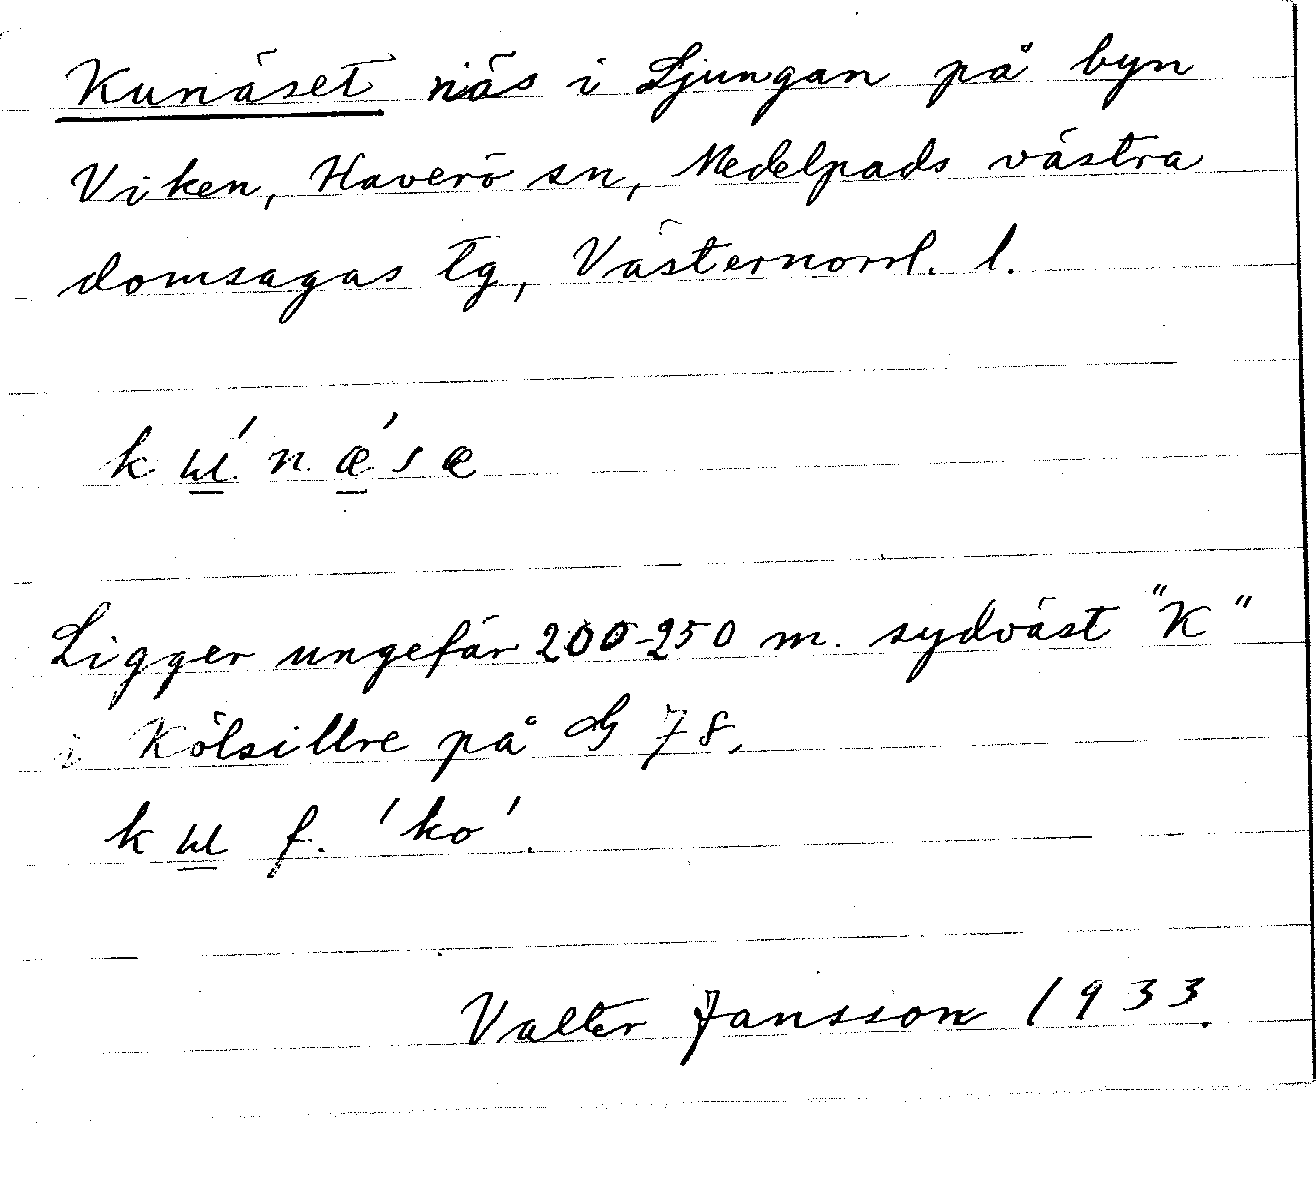 Kunäset näs i Ljungan på byn
Viken, Haverö sn, Medelpads västra
domsagas tg, Västernorrl. l.
k ɯ́ n ǽ s æ
Ligger ungefär 200-250 m. sydväst "K"
i Kölsillre på G 78.
k ɯ f. 'ko'.
Valter Jansson 1933.